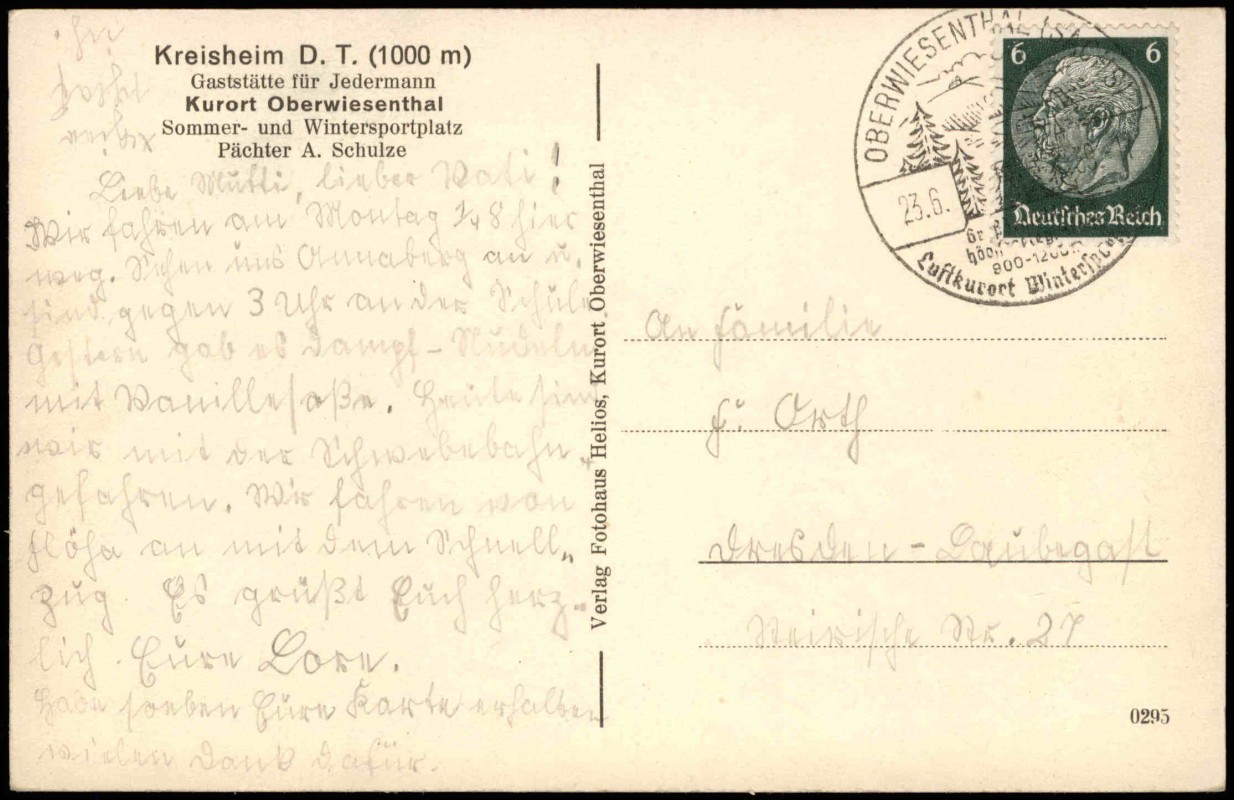 Kreisheim D. T. (1000 m)
Gaststätte für Jedermann
Kurort Oberwiesenthal
Sommer- und Wintersportplatz
Pächter A. Schulze
Liebe Mutti, lieber Vati!
Wir fahren am Montag 1/48 hier
weg. Sehen uns Annaberg an u.
sind gegen 3 Uhr an der Schule.
Gestern gab es Dampf-Nudeln
mit Vanillesoße. Heute sind
wir mit der Schwebebahn
gefahren. Wir fahren von
Flöha an mit dem Schnell-
zug. Es grüßt Euch herz-
lich Eure Lore.
Habe soeben Eure Karte erhalten
vielen Dank dafür.
Verlag Fotohaus Helios, Kurort Oberwiesenthal
OBERWIESENTHAL
23.6.
900-1200
Luftkurort Wintersp
6 6
Deutsches Reich
An Familie
F. Orth
Dresden-Laubegast
Steirische Str. 27
0295